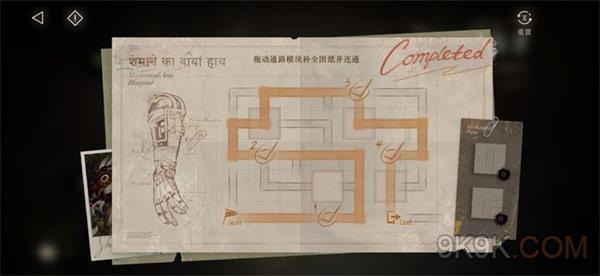 重置
शमाने का बायां हाथ
Mechanical Arm
Blueprint
拖动通路模块补全图纸并连通
Completed
3
2
4
1
Start
End
9K9K.COM